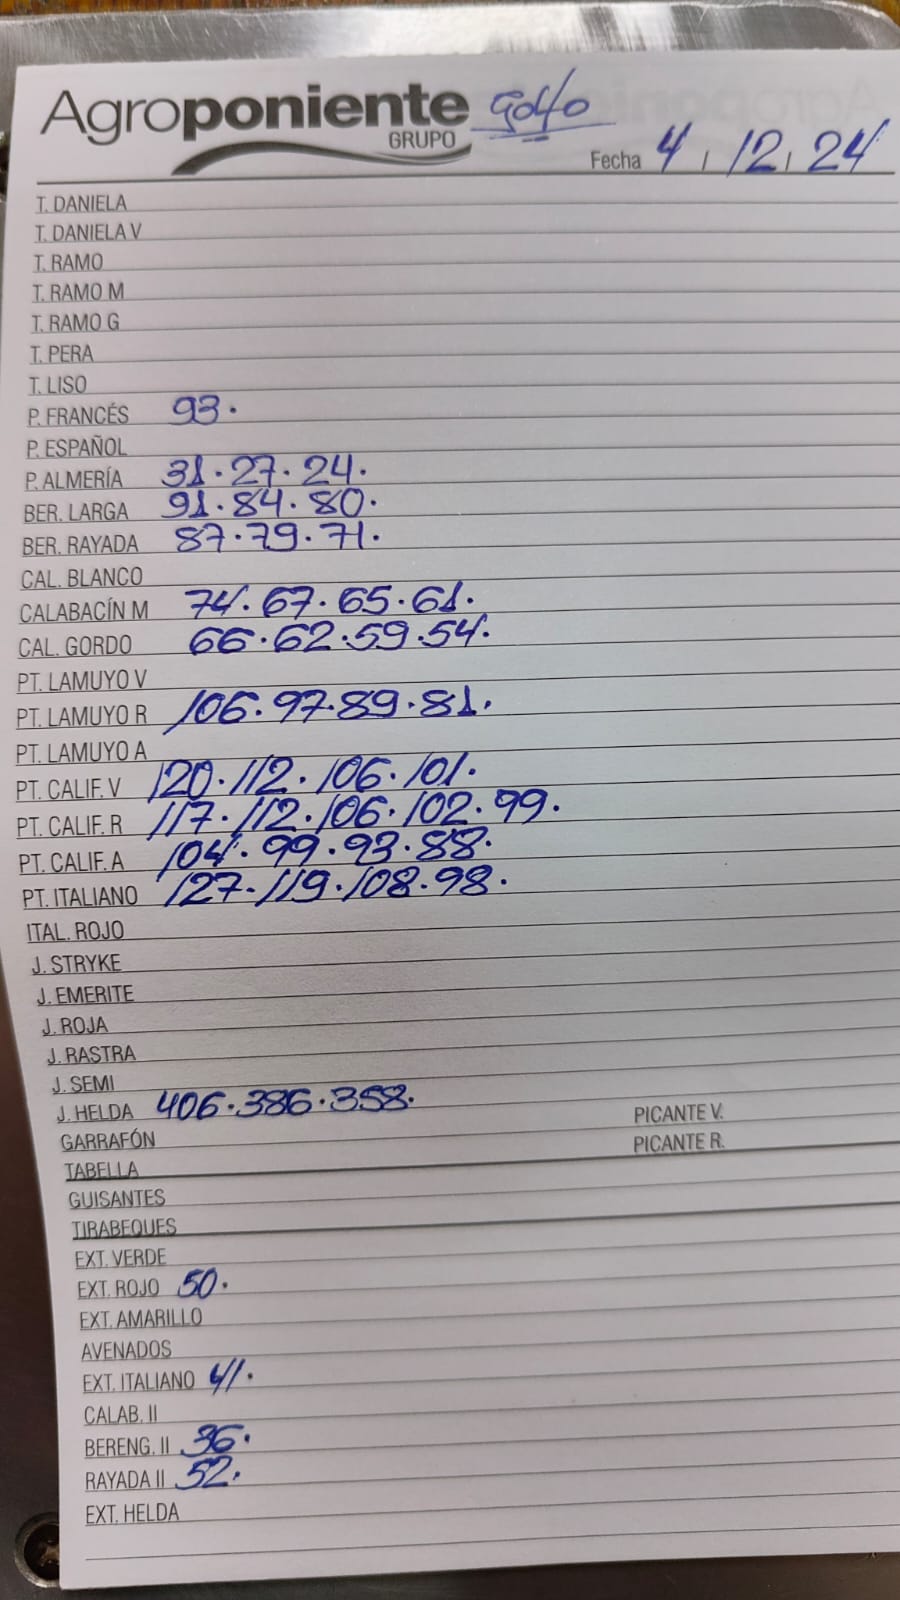 Agroponiente Golfo
GRUPO
Fecha 4 / 12 / 24
T. DANIELA
T. DANIELA V
T. RAMO
T. RAMO M
T. RAMO G
T. PERA
T. LISO
P. FRANCÉS 93.
P. ESPAÑOL
P. ALMERÍA 31. 27. 24.
BER. LARGA 91. 84. 80.
BER. RAYADA 87. 79. 71.
CAL. BLANCO
CALABACÍN M 74. 67. 65. 61.
CAL. GORDO 66. 62. 59. 54.
PT. LAMUYO V
PT. LAMUYO R 106. 97. 89. 81.
PT. LAMUYO A
PT. CALIF. V 120. 112. 106. 101.
PT. CALIF. R 117. 112. 106. 102. 99.
PT. CALIF. A 104. 99. 93. 88.
PT. ITALIANO 127. 119. 108. 98.
ITAL. ROJO
J. STRYKE
J. EMERITE
J. ROJA
J. RASTRA
J. SEMI
J. HELDA 406. 386. 358. PICANTE V.
GARRAFÓN PICANTE R.
TABELLA
GUISANTES
TIRABEQUES
EXT. VERDE
EXT. ROJO 50.
EXT. AMARILLO
AVENADOS
EXT. ITALIANO 41.
CALAB. II
BERENG. II 36.
RAYADA II 52.
EXT. HELDA